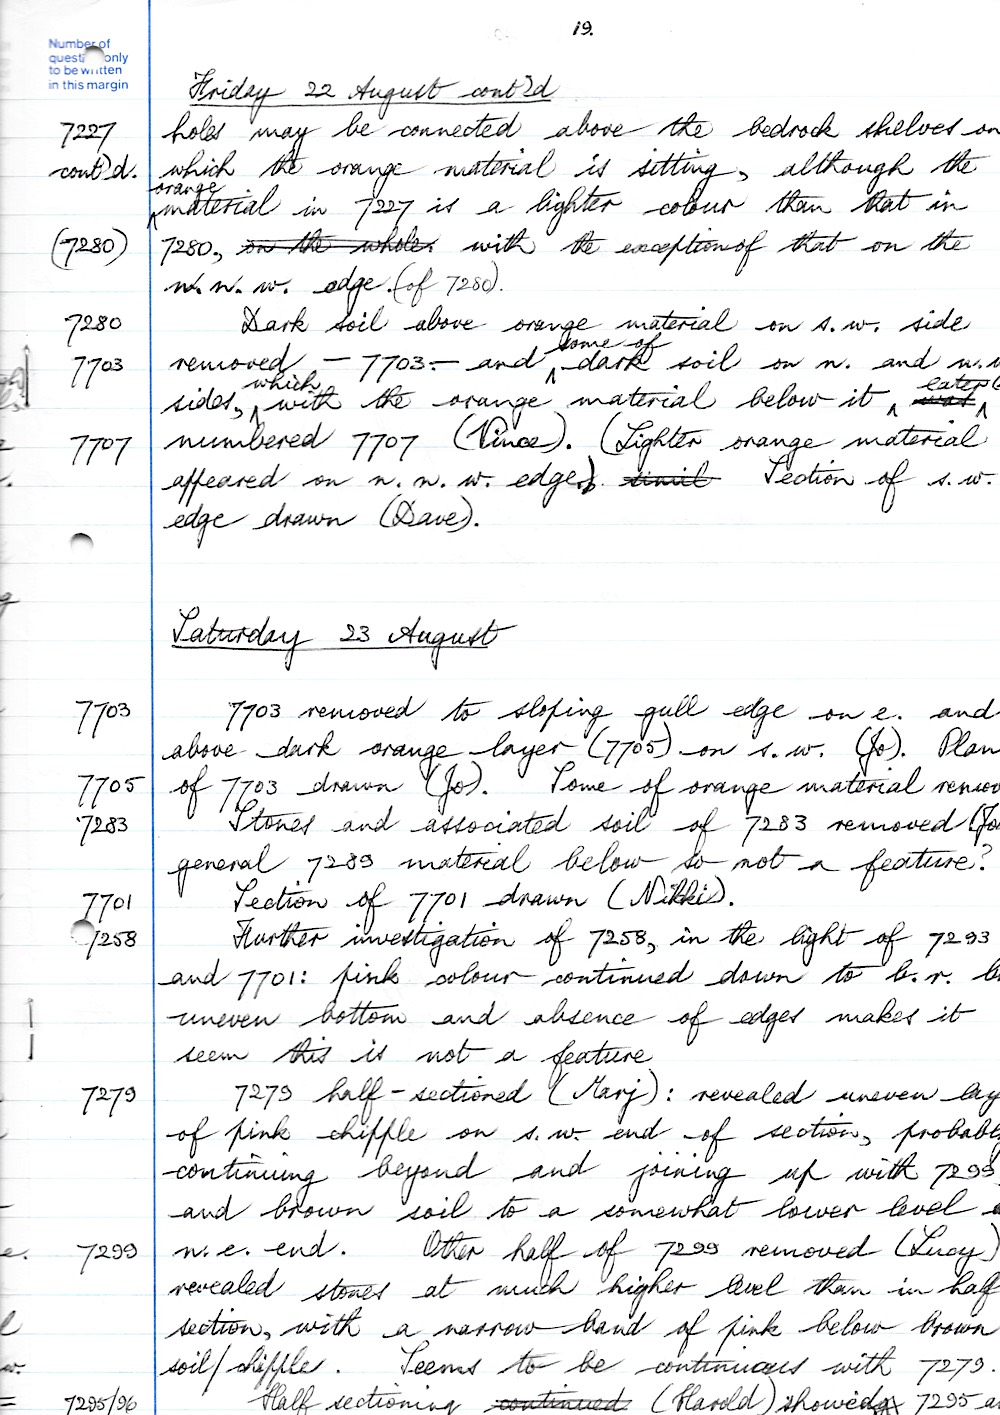 19.
Number of
question only
to be written
in this margin
Friday 22 August cont'd
7227 holes may be connected above the bedrock shelves on
cont'd. which the orange material is sitting, although the
orange
material in 7227 is a lighter colour than that in
(7280) 7280, on the whole. with the exception of that on the
n.n.w. edge. (of 7280).
7280 Dark soil above orange material on s.w. side
some of
7703 removed – 7703 – and dark soil on n. and n.w
which eater
sides, with the orange material below it was
7707 numbered 7707 (Vince). (Lighter orange material
appeared on n.n.w. edge). simil Section of s.w.
edge drawn (Dave).
Saturday 23 August
7703 7703 removed to sloping gull edge on e. and
above dark orange layer (7705) on s.w. (Jo). Plan
7705 of 7703 drawn (Jo). Some of orange material remov
7283 Stones and associated soil of 7283 removed (Jo
general 7289 material below so not a feature?
7701 Section of 7701 drawn (Nikki).
7258 Further investigation of 7258, in the light of 7293
and 7701: pink colour continued down to b.r. b
uneven bottom and absence of edges makes it
seem this is not a feature
7279 7279 half-sectioned (Marj): revealed uneven lay
of pink chipple on s.w. end of section, probabl
continuing beyond and joining up with 7299,
and brown soil to a somewhat lower level
7299 n.e. end. Other half of 7299 removed (Lucy)
revealed stones at much higher level than in half
section, with a narrow band of pink below brown
soil/chipple. Seems to be continuous with 7279.
7295/96 Half sectioning continued (Harold) showed 7295 a